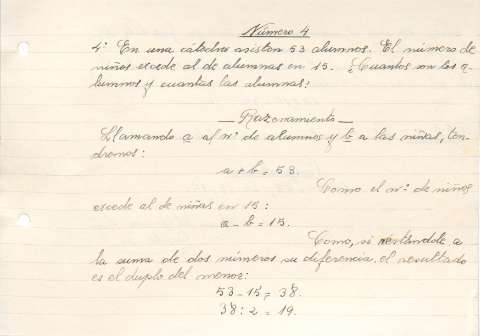 Número 4
4º En una cátedra asisten 53 alumnos. El número de
niños excede al de alumnas en 15. ¿Cuantos son los a-
lumnos y cuantas las alumnas?
— Razonamiento —
Llamando a al nº de alumnos y b a las niñas, ten-
dremos:
a + b = 53.
Como el nº de niños
excede al de niñas en 15:
a - b = 15.
Como, si restándole a
la suma de dos números su diferencia el resultado
es el duplo del menor:
53 - 15 = 38.
38 : 2 = 19.